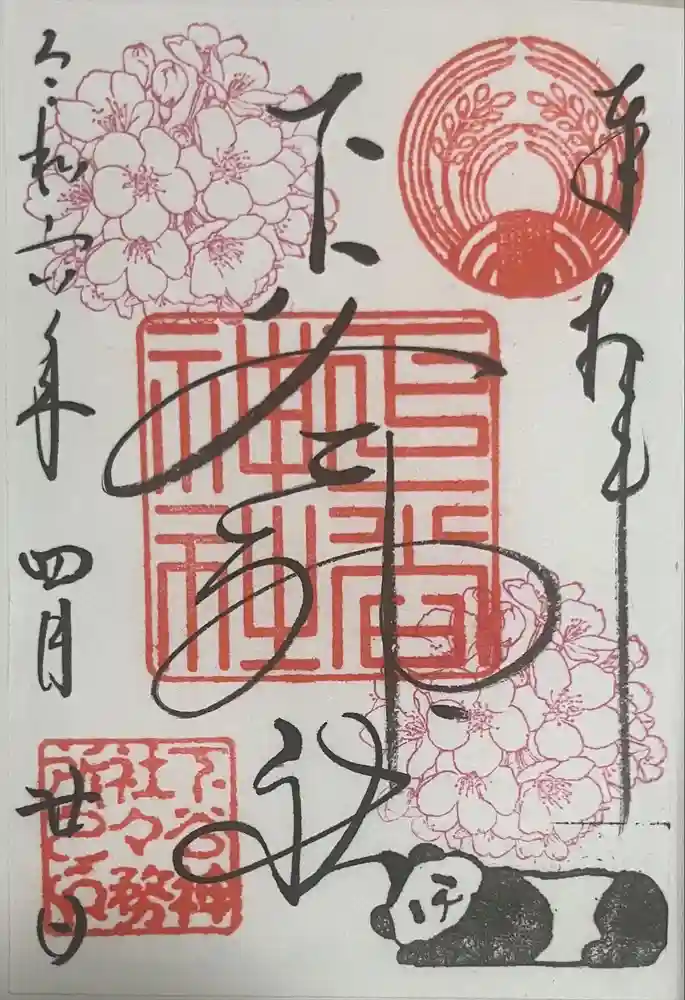 奉拝
下谷神社
下谷
神社
令和六年 四月 廿日
下谷神
社々務
所之印